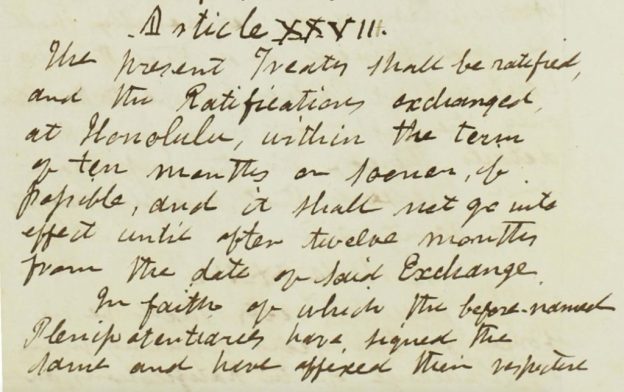 Article XXVII.
The present Treaty shall be ratified,
and the Ratifications exchanged,
at Honolulu, within the term
of ten months or sooner, if
possible, and it shall not go into
effect until after twelve months
from the date of said Exchange.
In faith of which the before-named
Plenipotentiaries have signed the
same and have affixed their respective